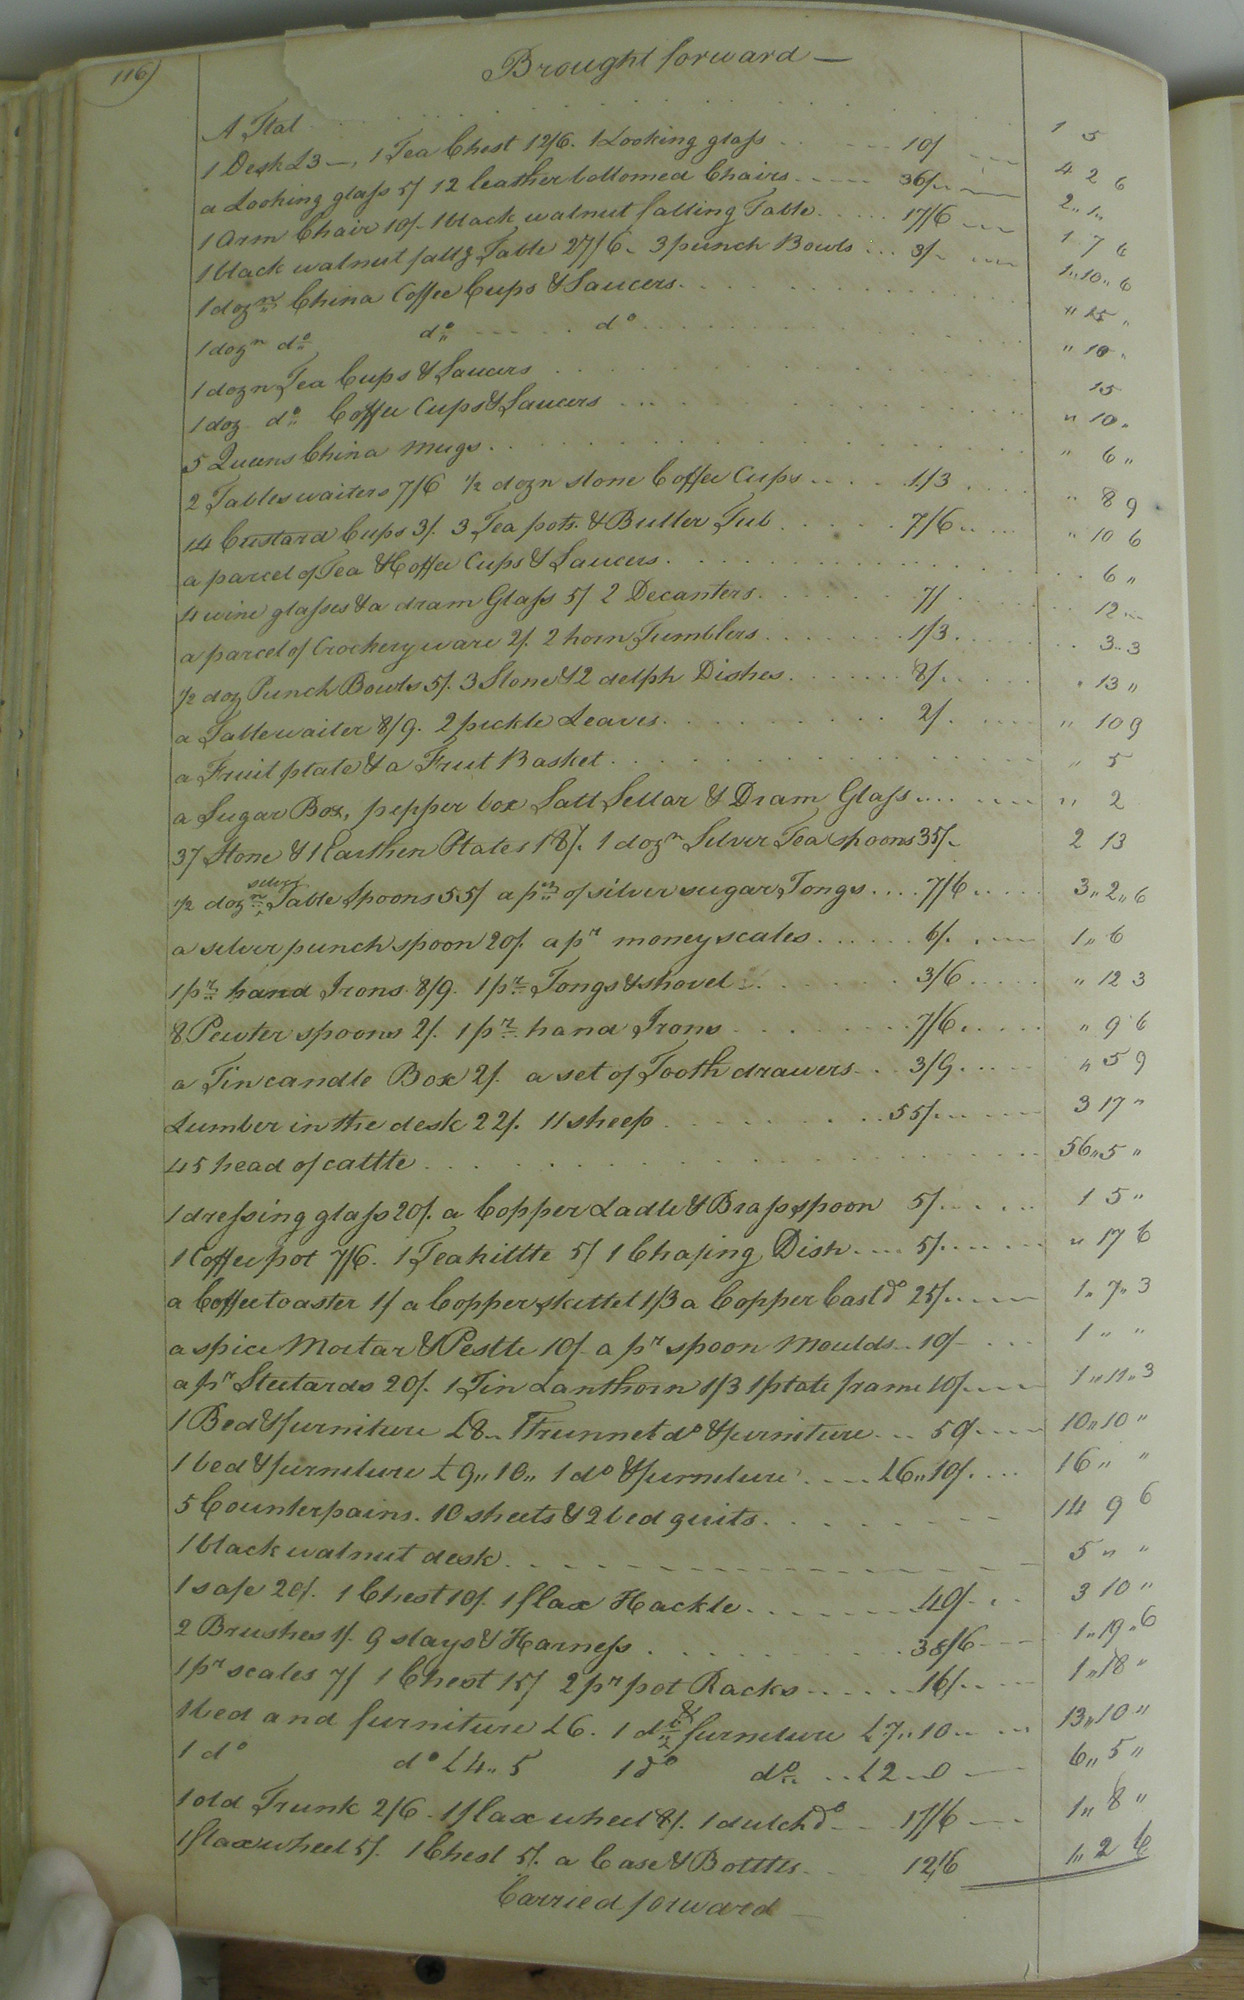 116)
Brought forward —
A Flat 1 5
1 Desk £3 —, 1 Tea Chest 12/6. 1 Looking glass 10/ 4 2 6
a Looking glass 5/ 12 leather bottomed Chairs 36/ 2 1
1 Arm Chair 10/ 1 black walnut falling Table 17/6 1 7 6
1 black walnut fallg Table 27/6 3 punch Bowls 3/ 1 10 6
1 dozn China Coffee Cups & Saucers " 25 "
1 dozn do do do " 10 "
1 dozn Tea Cups & Saucers 15
1 doz do Coffee Cups & Saucers " 10
5 Queens China mugs " 6 "
2 Tables waiters 7/6 1/2 dozn stone Coffee Cups 1/3 " 8 9
14 Custard Cups 3/. 3 Tea pots & Butter Tub 7/6 " 10 6
a parcel of Tea & Coffee Cups & Saucers 6 "
4 wine glasses & a dram Glass 5/ 2 Decanters 7/ 12
a parcel of Crockery ware 2/. 2 horn Tumblers 1/3 3 3
1/2 doz Punch Bowls 5/. 3 Stone & 2 delph Dishes 8/ " 13 "
a Table waiter 8/9. 2 pickle Leaves 2/ " 10 9
a Fruit plate & a Frut Basket " 5
a Sugar Box, pepper box Salt Sellar & Dram Glass " 2
37 Stone & 1 Earthen Plates 18/. 1 dozn Silver Tea spoons 35/ 2 13
1/2 dozn silver Table Spoons 55/ a pr of silver sugar Tongs 7/6 3 2 6
a silver punch spoon 20/. a pr money scales 6/. 1 " 6
1 pr hand Irons 8/9. 1 pr Tongs & shovel 3/6 " 12 3
8 Pewter spoons 2/. 1 pr hand Irons 7/6 " 9 6
a Tin candle Box 2/. a set of Tooth drawers 3/9 " 5 9
Lumber in the desk 22/. 11 sheep 55/ 3 17 "
45 head of cattle 56 5 "
1 dressing glass 20/. a Copper Ladle & Brass spoon 5/ 1 5 "
1 Coffee pot 7/6. 1 Teakittle 5/ 1 Chafing Dish 5/ " 17 6
a Coffee toaster 1/ a Copper skittet 1/3 a Copper Cast do 25/ 1 7 3
a spice Mortar & Pestle 10/ a pr spoon moulds 10/ 1 " "
a pr Steetards 20/. 1 Tin Lanthorn 1/3 1 plate frame 10/ 1 11 3
1 Bed & furniture £8 1 Trunnet do & furniture 50/ 10 10 "
1 bed & furneture £9 10 1 do & furneture £6 10/ 16 " "
5 Counterpains. 10 sheets & 2 bed quits 14 9 6
1 black walnut desk 5 " "
1 safe 20/. 1 Chest 10/. 1 flax Hackle 40/ 3 10 "
2 Brushes 1/. 9 slays & Harness 38/6 1 19 6
1 pr scales 7/ 1 Chest 15/ 2 pr pot Racks 16/ 1 18 "
1 bed and furniture £6. 1 do & furneture £7 10 13 10 "
1 do do £4 5 1 do do £2 0 6 5 "
1 old Trunk 2/6 1 flax wheel 8/. 1 dutch do 17/6 1 8 "
1 flax wheel 5/. 1 Chest 5/. a Case & Bottles 12/6 1 2 6
Carried forward —